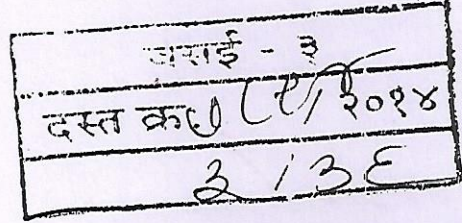 वसई - ३
दस्त क्र / २०१४
३ / ३६